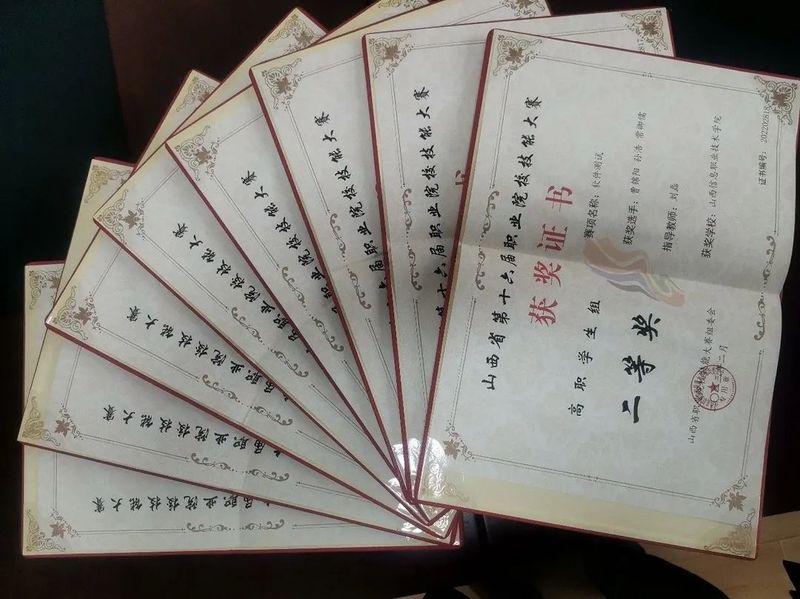 山西省第十六届职业院校技能大赛
获奖证书
赛项名称:软件测试
获奖选手:曹锦阳 孙浩 常御儒
指导教师:刘磊
获奖学校:山西信息职业技术学院
高职学生组
二等奖
山西省职业院校技能大赛组委会
二月
证书编号:202202817
职业院校技能大赛
十六届职业院校技能大赛
届职业院校技能大赛
届职业院校技能大赛
职业院校技能大赛
届职业院校技能大赛
届职业院校技能大赛
届职业院校技能大赛